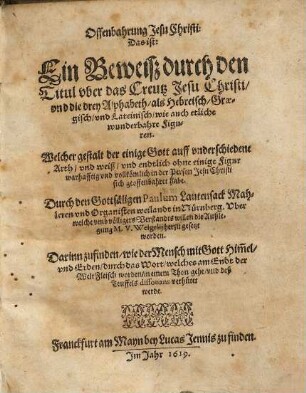 Offenbahrung Jesu Christi:
Das ist:
Ein Beweiß durch den
Titul vber das Creutz Jesu Christi/
vnd die drey Alphabeth/ als Hebreisch/ Græ-
gisch/ vnd Lateinisch/ wie auch etliche
wunderbahre Figu-
ren.
Welcher gestalt der einige Gott auff vnderschiedene
Arth/ vnd weiß/ vnd endtlich ohne einige Figur
warhafftig vnd vollkömlich in der Person Jesu Christi
sich geoffenbahret habe.
Durch den Gottsäligen Paulum Lautensack Mah-
lëren vnd Organisten weilandt in Nürnberg. Vber
welche vmb völligers Verstandts willen die Außle-
gung M. V. Weigelij hierzu gesetzt
worden.
Darinn zufinden/ wie der Mensch mit Gott Him̃el/
vnd Erden/ durch das Wort/ welches am Ende der
Welt Fleisch worden/ in einem Thon gehe/ vnd deß
Teuffels dissonanz verhütet
werde.
Franckfurt am Mayn bey Lucas Jennis zu finden.
Im Jahr 1619.